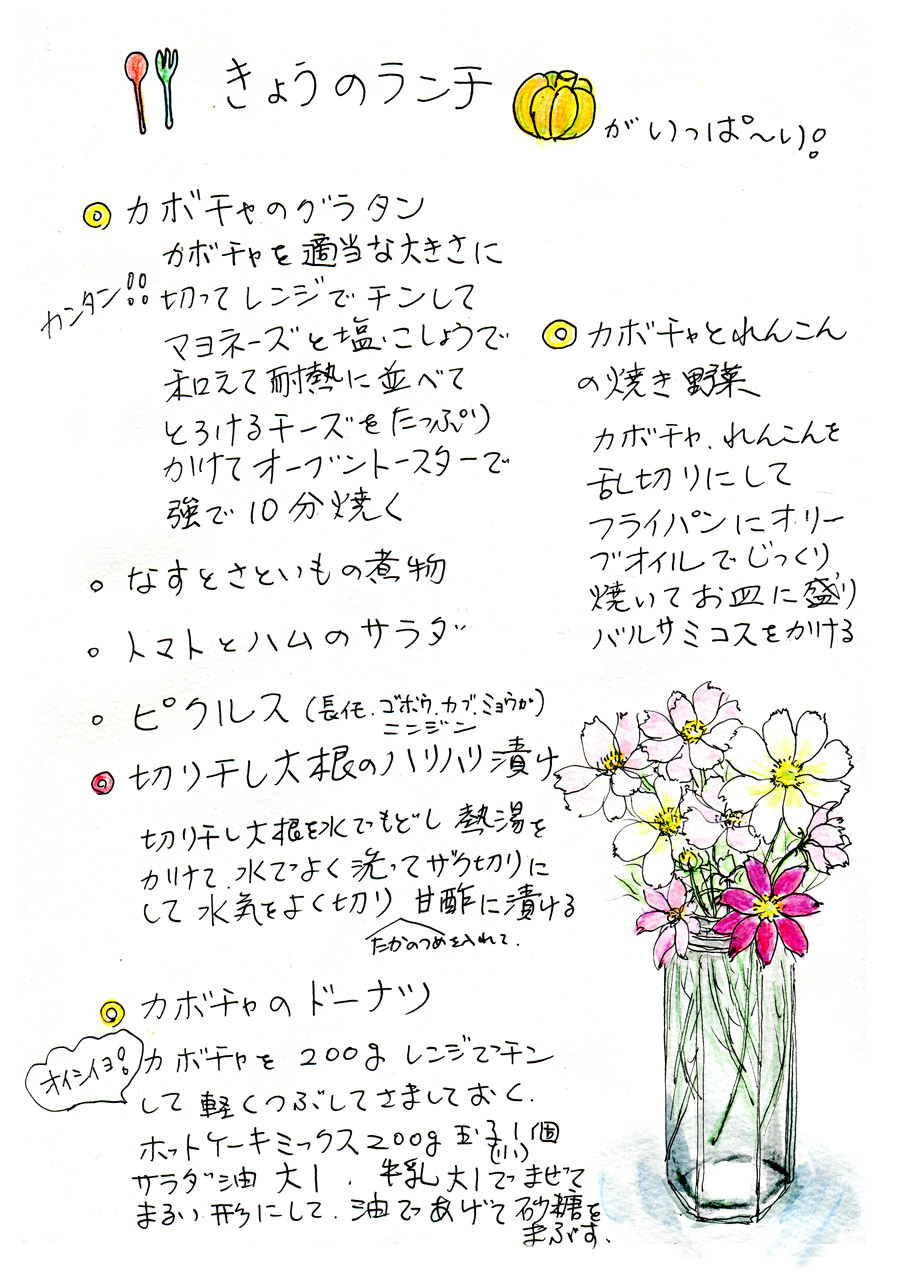 きょうのランチ
がいっぱ〜い!
カボチャのグラタン
カンタン!!
カボチャを適当な大きさに
切ってレンジでチンして
マヨネーズと塩・こしょうで
和えて耐熱に並べて
とろけるチーズをたっぷり
かけてオーブントースターで
強で10分焼く
カボチャとれんこん
の焼き野菜
カボチャ、れんこんを
乱切りにして
フライパンにオリー
ブオイルでじっくり
焼いてお皿に盛り
バルサミコスをかける
なすとさといもの煮物
トマトとハムのサラダ
ピクルス(長イモ.ゴボウ.カブ.ミョウガ)
ニンジン
切り干し大根のハリハリ漬け
切り干し大根を水でもどし熱湯を
かけて水でよく洗ってザク切りに
して水気をよく切り甘酢に漬ける
たかのつめを入れて.
カボチャのドーナツ
オイシイヨ!
カボチャを200gレンジでチン
して軽くつぶしてさましておく.
ホットケーキミックス200g玉子1個
(小)
サラダ油大1.牛乳大1でまぜて
まるい形にして.油であげて砂糖を
まぶす.